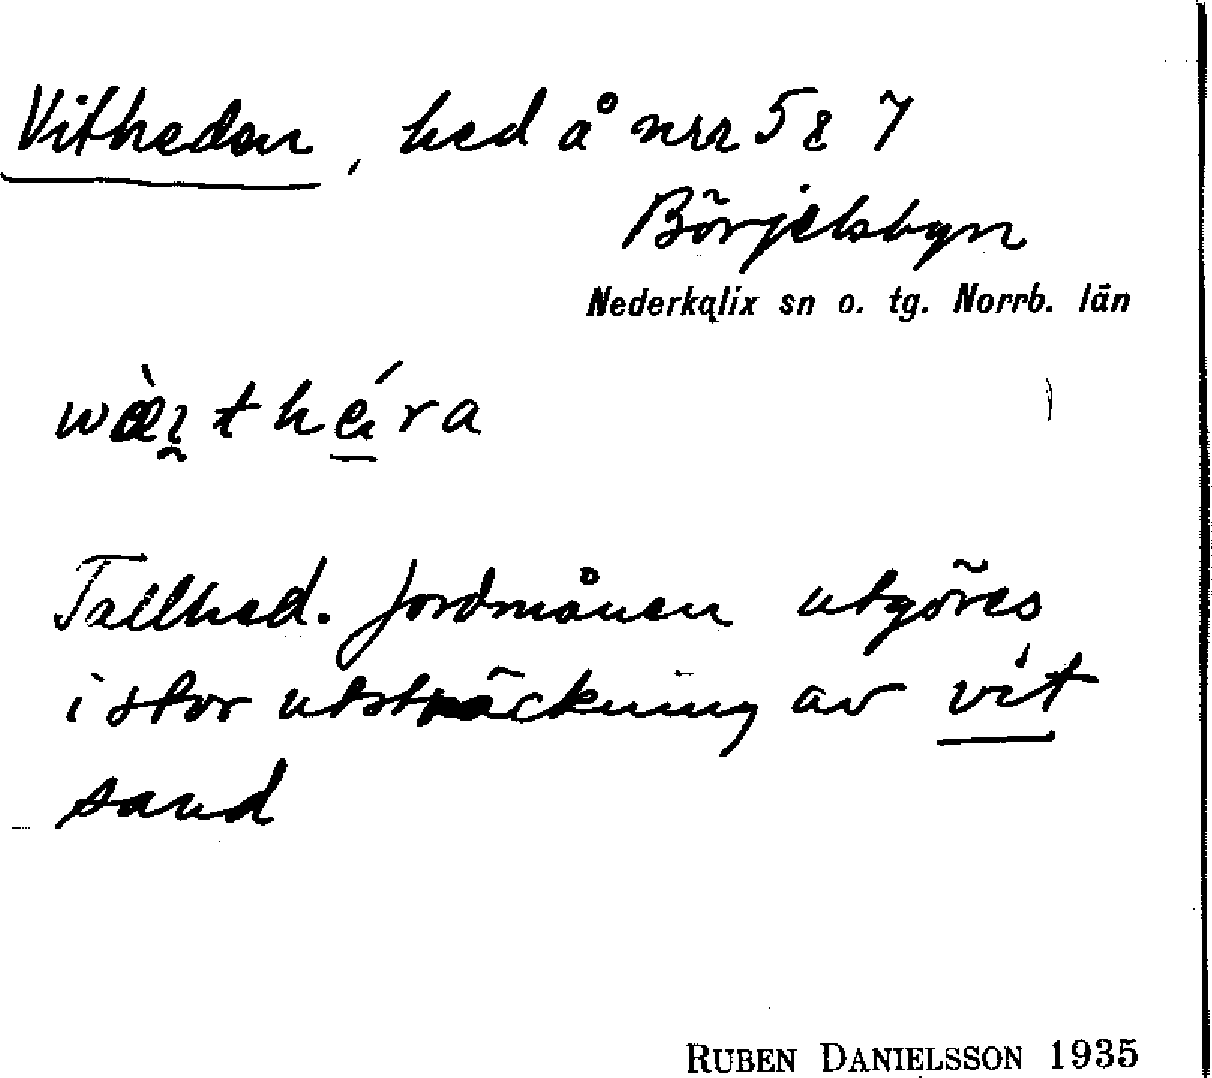 Vitheden, hed å nrr 5 & 7
Börjelsbyn
Nederkalix sn o. tg. Norrb. län
Tallhed. Jordmånen utgöres
i stor utsträckning av vit
sand
RUBEN DANIELSSON 1935